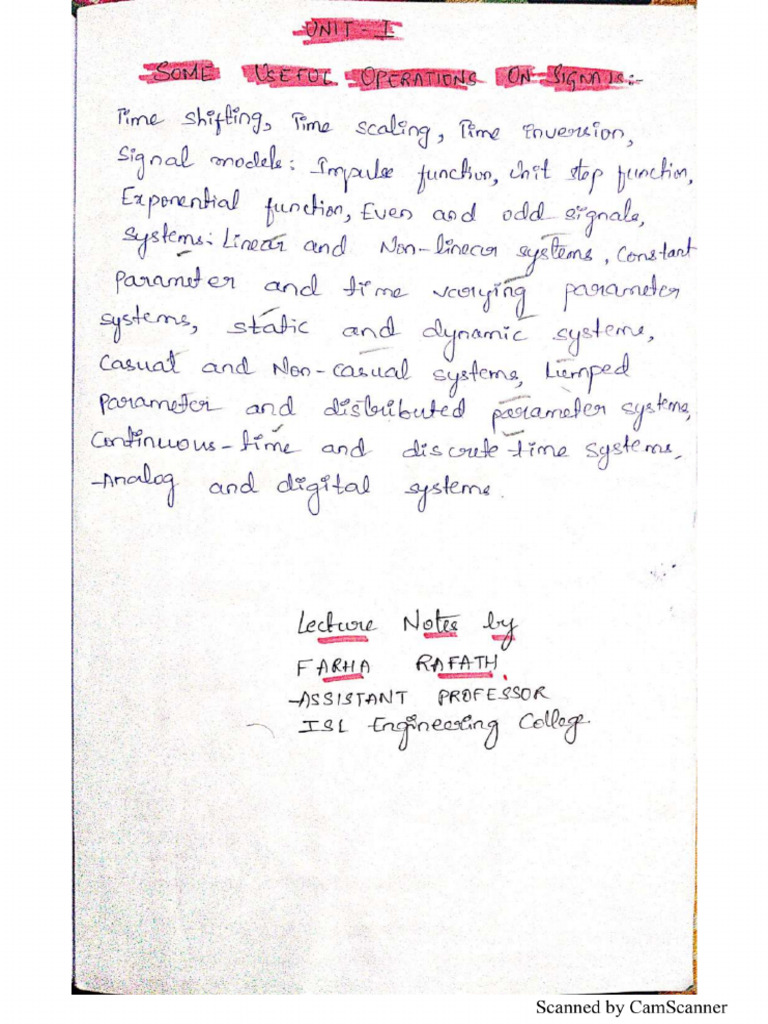 UNIT - I
SOME USEFUL OPERATIONS ON SIGNALS:-
Time shifting, Time scaling, Time Inversion,
Signal models: Impulse function, Unit step function,
Exponential function, Even and odd signals,
systems: Linear and Non-linear systems, Constant
parameter and time varying parameter
systems, static and dynamic systems,
Casual and Non-casual systems, Lumped
parameter and distributed parameter systems,
Continuous-time and discrete-time systems,
Analog and digital systems.
Lecture Notes by
FARHA RAFATH.
ASSISTANT PROFESSOR
ISL Engineering College
Scanned by CamScanner